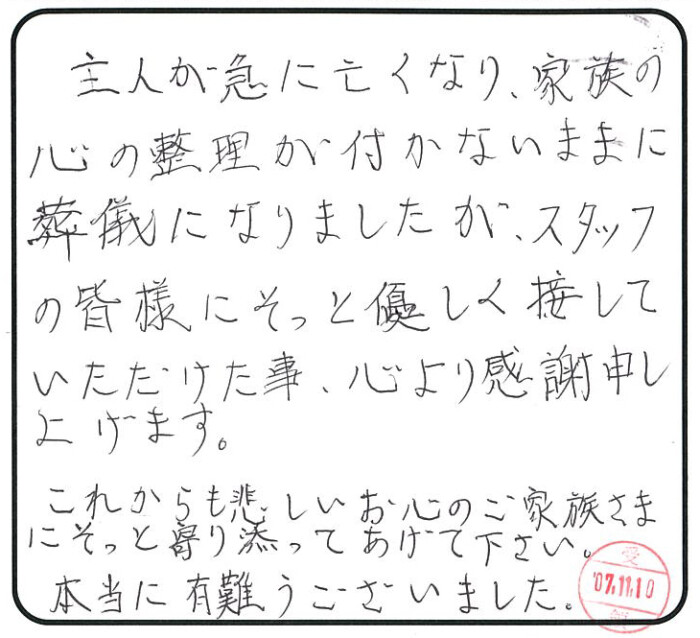 主人が急に亡くなり、家族の
心の整理が付かないままに
葬儀になりましたが、スタッフ
の皆様にそっと優しく接して
いただけた事、心より感謝申し
上げます。
これからも悲しいお心のご家族さま
にそっと寄り添ってあげて下さい。
本当に有難うございました。
受
'07.11.10